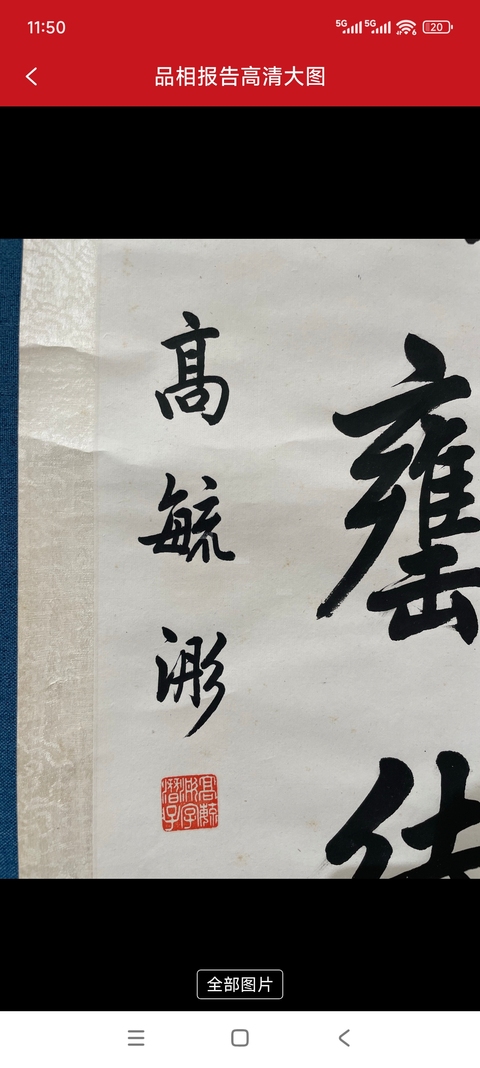 11:50
5G 5G 20
品相报告高清大图
罋
高毓浵
高毓浵字潜子
全部图片